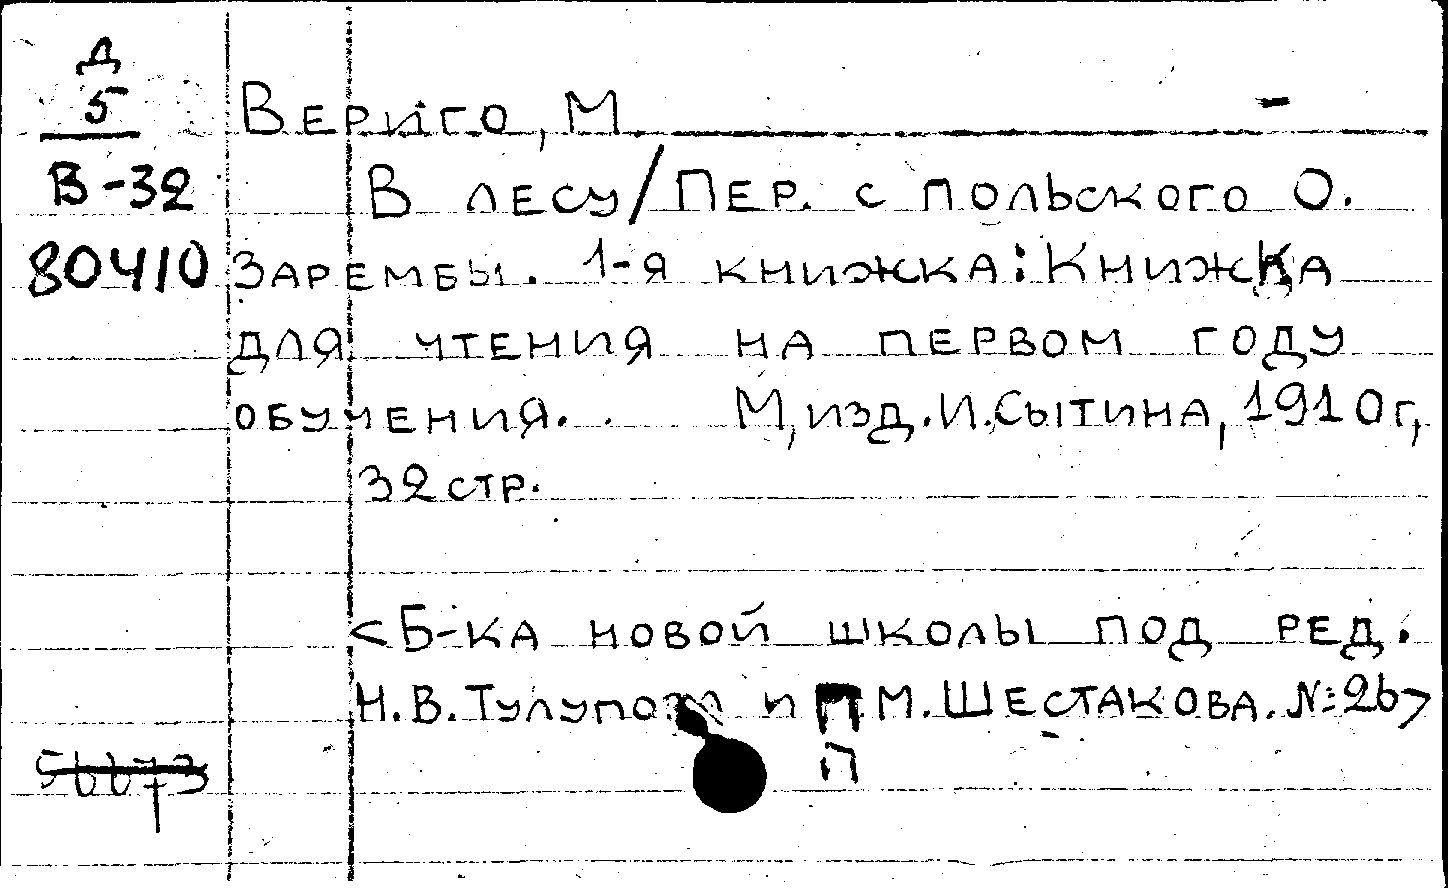 Д
5
Вериго, М.
В-32
В лесу/Пер. с польского О.
80410
Зарембы. 1-я книжка: Книжка
для чтения на первом году
обучения. М, изд. И. Сытина, 1910г,
32 стр.
<Б-ка новой школы под ред.
Н.В. и П.М. Шестакова. №26>
П